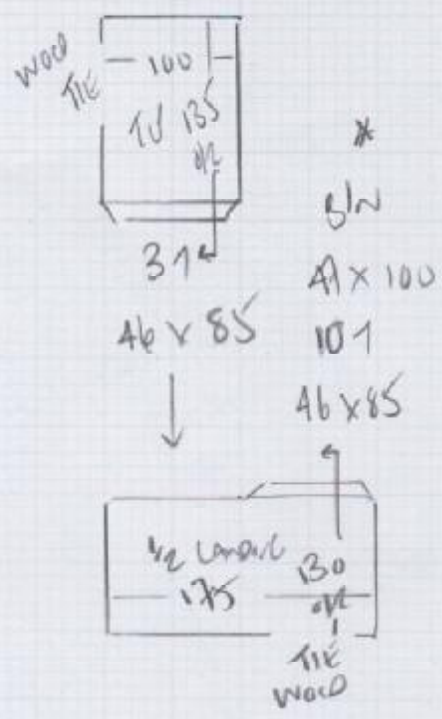 WOOD
TIE
100
TO 135
O/L
31
46 x 85
*
BIN
47 x 100
101
46 x 85
1/2 LANDING
175
130
O/L
TIE
WOOD